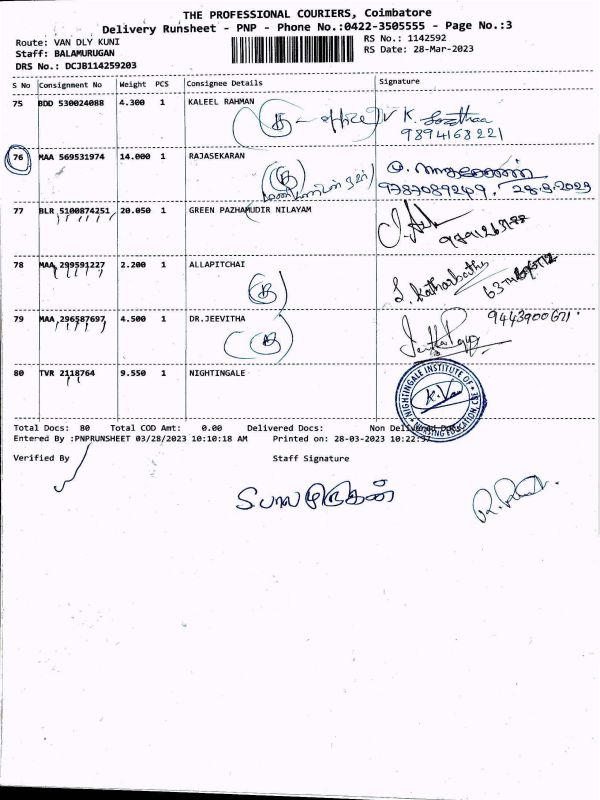 THE PROFESSIONAL COURIERS, Coimbatore
Delivery Runsheet - PNP - Phone No.:0422-3505555 - Page No.:3
Route: VAN DLY KUNI RS No.: 1142592
Staff: BALAMURUGAN RS Date: 28-Mar-2023
DRS No.: DCJB114259203
S No Consignment No Weight PCS Consignee Details Signature
75 BDD 530024088 4.300 1 KALEEL RAHMAN
K.
9894168221
76 MAA 569531974 14.000 1 RAJASEKARAN
28.3.2023
77 BLR 5100874251 20.050 1 GREEN PAZHAMUDIR NILAYAM
78 MAA 299591227 2.200 1 ALLAPITCHAI
79 MAA 296587697 4.500 1 DR.JEEVITHA
9443900671
80 TVR 2118764 9.550 1 NIGHTINGALE
NIGHTINGALE INSTITUTE OF
K.Van
Total Docs: 80 Total COD Amt: 0.00 Delivered Docs: Non Delivered Docs:
Entered By :PNPRUNSHEET 03/28/2023 10:10:18 AM Printed on: 28-03-2023 10:22:37
Verified By Staff Signature
S பாலமுருகன்